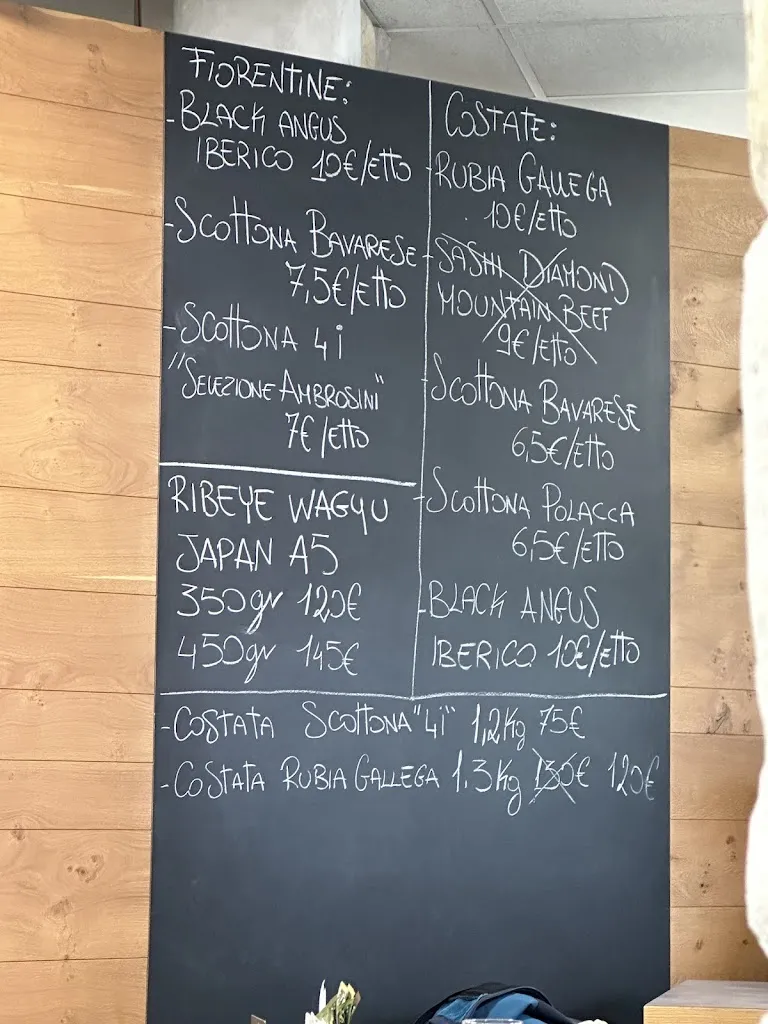 FIORENTINE:
- BLACK ANGUS
IBERICO 10€/ETTO
- SCOTTONA BAVARESE
7,5€/ETTO
- SCOTTONA 4i
"SELEZIONE AMBROSINI"
7€/ETTO
RIBEYE WAGYU
JAPAN A5
350gr 120€
450gr 145€
COSTATE:
- RUBIA GALLEGA
10€/ETTO
- SASHI DIAMOND
MOUNTAIN BEEF
9€/ETTO
- SCOTTONA BAVARESE
6,5€/ETTO
- SCOTTONA POLACCA
6,5€/ETTO
- BLACK ANGUS
IBERICO 10€/ETTO
- COSTATA SCOTTONA "4i" 1,2Kg 75€
- COSTATA RUBIA GALLEGA 1.3Kg 130€ 120€